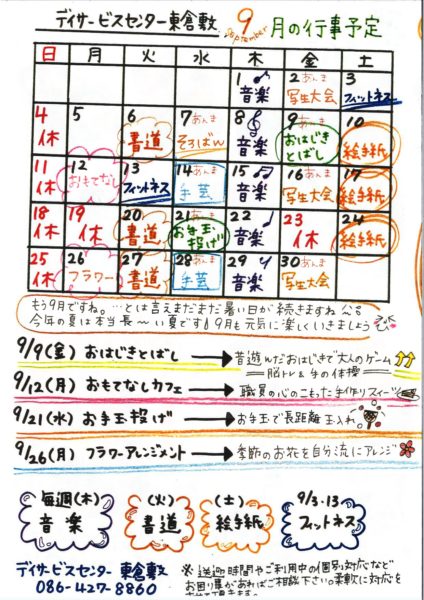 デイサービスセンター東倉敷 9 September 月の行事予定
日 月 火 水 木 金 土
1 2 あんま 3
音楽 写生大会 フィットネス
4 5 6 7 あんま 8 9 あんま 10
休 書道 そろばん 音楽 おはじきとばし 絵手紙
11 12 13 14 あんま 15 16 あんま 17
休 おもてなし フィットネス 手芸 音楽 写生大会 絵手紙
18 19 20 21 あんま 22 23 24
休 休 書道 お手玉投げ 音楽 休 絵手紙
25 26 27 28 あんま 29 30 あんま
休 フラワー 書道 手芸 音楽 写生大会
もう9月ですね。…とは言えまだまだ暑い日が続きますね
今年の夏は本当長〜い夏です!9月も元気に楽しくいきましょう
9/9(金) おはじきとばし → 昔遊んだおはじきで大人のゲーム
脳トレ&手の体操
9/12(月) おもてなしカフェ → 職員の心のこもった手作りスイーツ
9/21(水) お手玉投げ → お手玉で長距離玉入れ
9/26(月) フラワーアレンジメント → 季節のお花を自分流にアレンジ
毎週(木) (火) (土) 9/3・13
音楽 書道 絵手紙 フィットネス
デイサービスセンター 東倉敷
086-427-8860
※ 送迎時間やご利用中の個別対応など
お困り事があればご相談下さい。柔軟に対応を